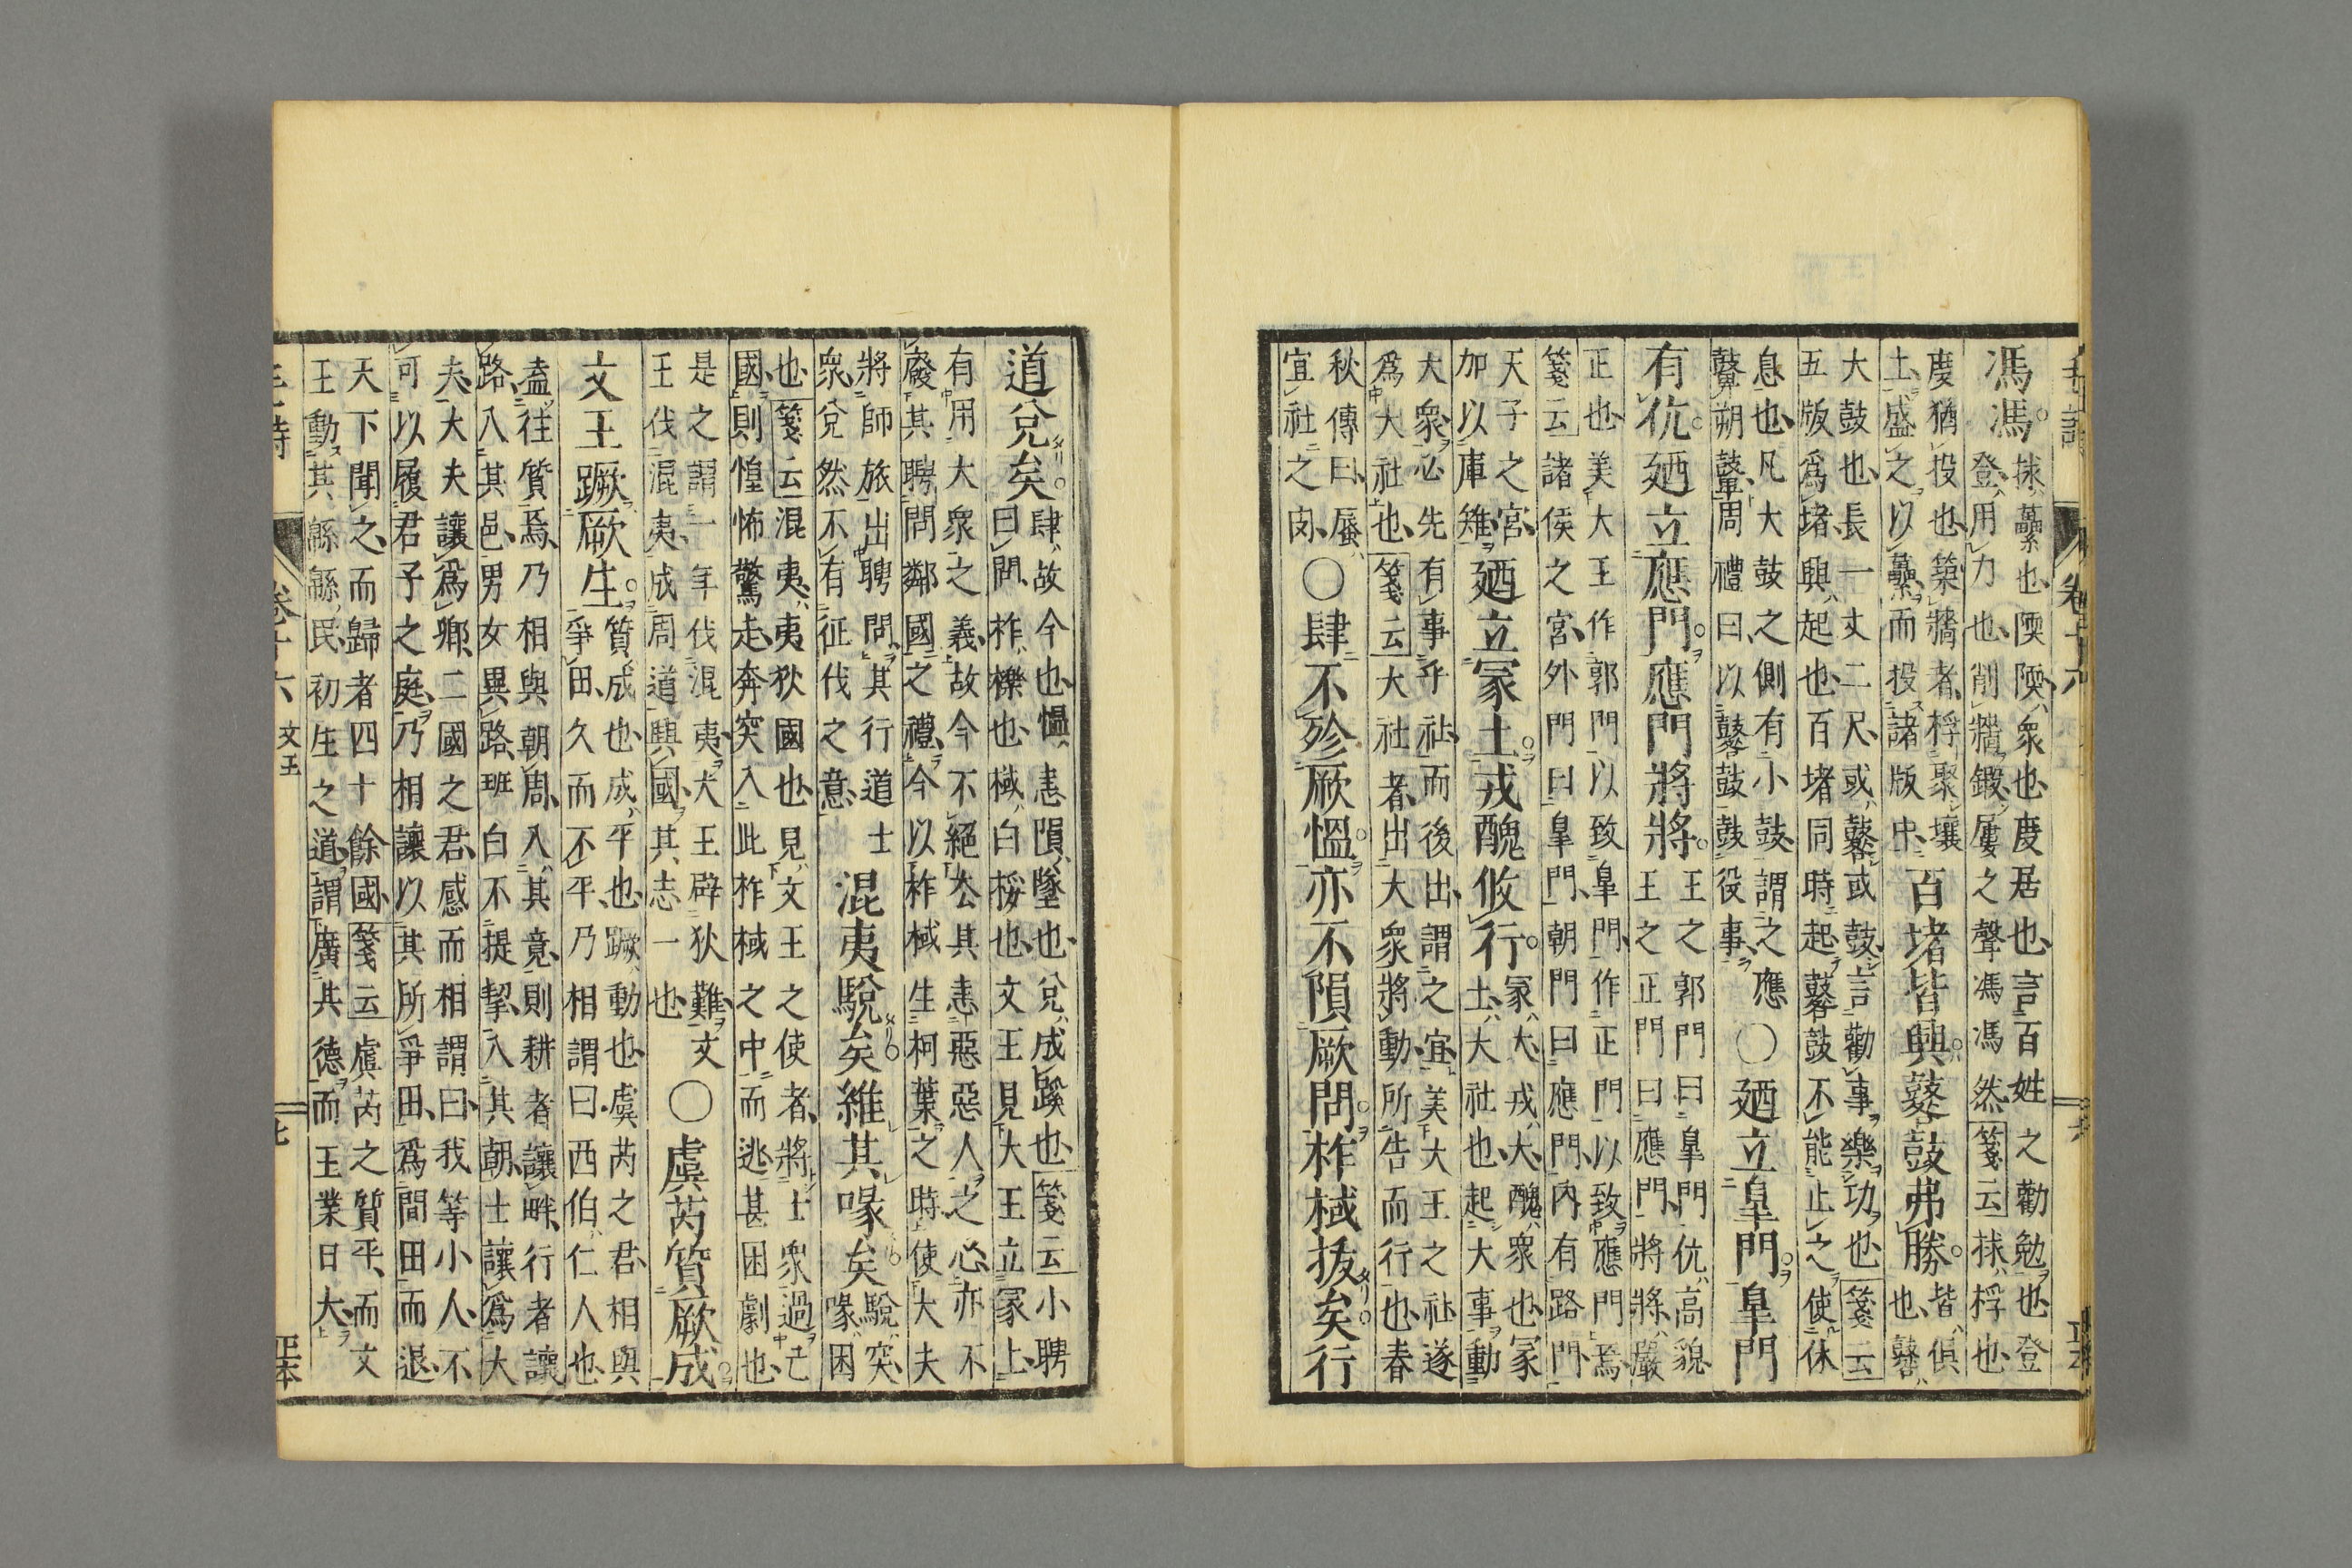 毛詩　卷十六　六　正本
馮馮
捄蘽也陾陾眾也度居也言百姓之勸勉也登
登用力也削牆鍛屢之聲馮馮然箋云捄桴也
度猶投也築牆者桴聚壤
土盛之以蘽而投諸版中
百堵皆興鼛鼓弗勝
皆俱
也鼛
大鼓也長一丈二尺或鼛或鼓言勸事樂功也箋云
五版爲堵興起也百堵同時起鼛鼓不能止之使休
息也凡大鼓之側有小鼓謂之應
鼙朔鼙周禮曰以鼛鼓鼓役事
○廼立皐門皐門
有伉廼立應門應門將將
王之郭門曰皐門伉高貌
王之正門曰應門將將嚴
正也美大王作郭門以致皐門作正門以致應門焉
箋云諸侯之宮外門曰皐門朝門曰應門內有路門
天子之宮
加以庫雉
廼立冢土戎醜攸行
冢大戎大醜眾也冢
土大社也起大事動
大眾必先有事乎社而後出謂之宜美大王之社遂
爲大社也箋云大社者出大眾將動所告而行也春
秋傳曰蜃
宜社之肉
○肆不殄厥慍亦不隕厥問柞棫拔矣行
道兌矣
肆故今也慍恚隕墜也兌成蹊也箋云小聘
曰問柞櫟也棫白桵也文王見大王立冢土
有用大眾之義故今不絕去其恚惡惡人之心亦不
廢其聘問鄰國之禮今以柞棫生柯葉之時使大夫
將師旅出聘問其行道士
眾兌然不有征伐之意
混夷駾矣維其喙矣
駾突
喙困
也箋云混夷夷狄國也見文王之使者將士眾過己
國則惶怖驚走奔突入此柞棫之中而逃甚困劇也
是之謂一年伐混夷大王辟狄難文
王伐混夷成周道興國其志一也
○虞芮質厥成
文王蹶厥生
質成也成平也蹶動也虞芮之君相與
爭田久而不平乃相謂曰西伯仁人也
盍往質焉乃相與朝周入其竟則耕者讓畔行者讓
路入其邑男女異路班白不提挈入其朝士讓爲大
夫大夫讓爲卿二國之君感而相謂曰我等小人不
可以履君子之庭乃相讓以其所爭田爲間田而退
天下聞之而歸者四十餘國箋云虞芮之質平而文
王動其緜緜民初生之道謂廣其德而王業日大
毛詩　卷十六　文王　七　正本